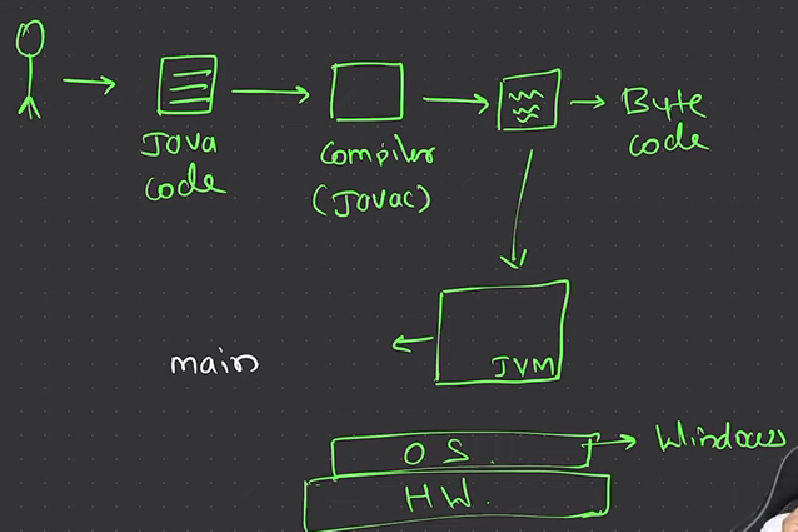 Java
code
Compiler
(Javac)
Byte
code
main
JVM
OS.
HW.
Windows